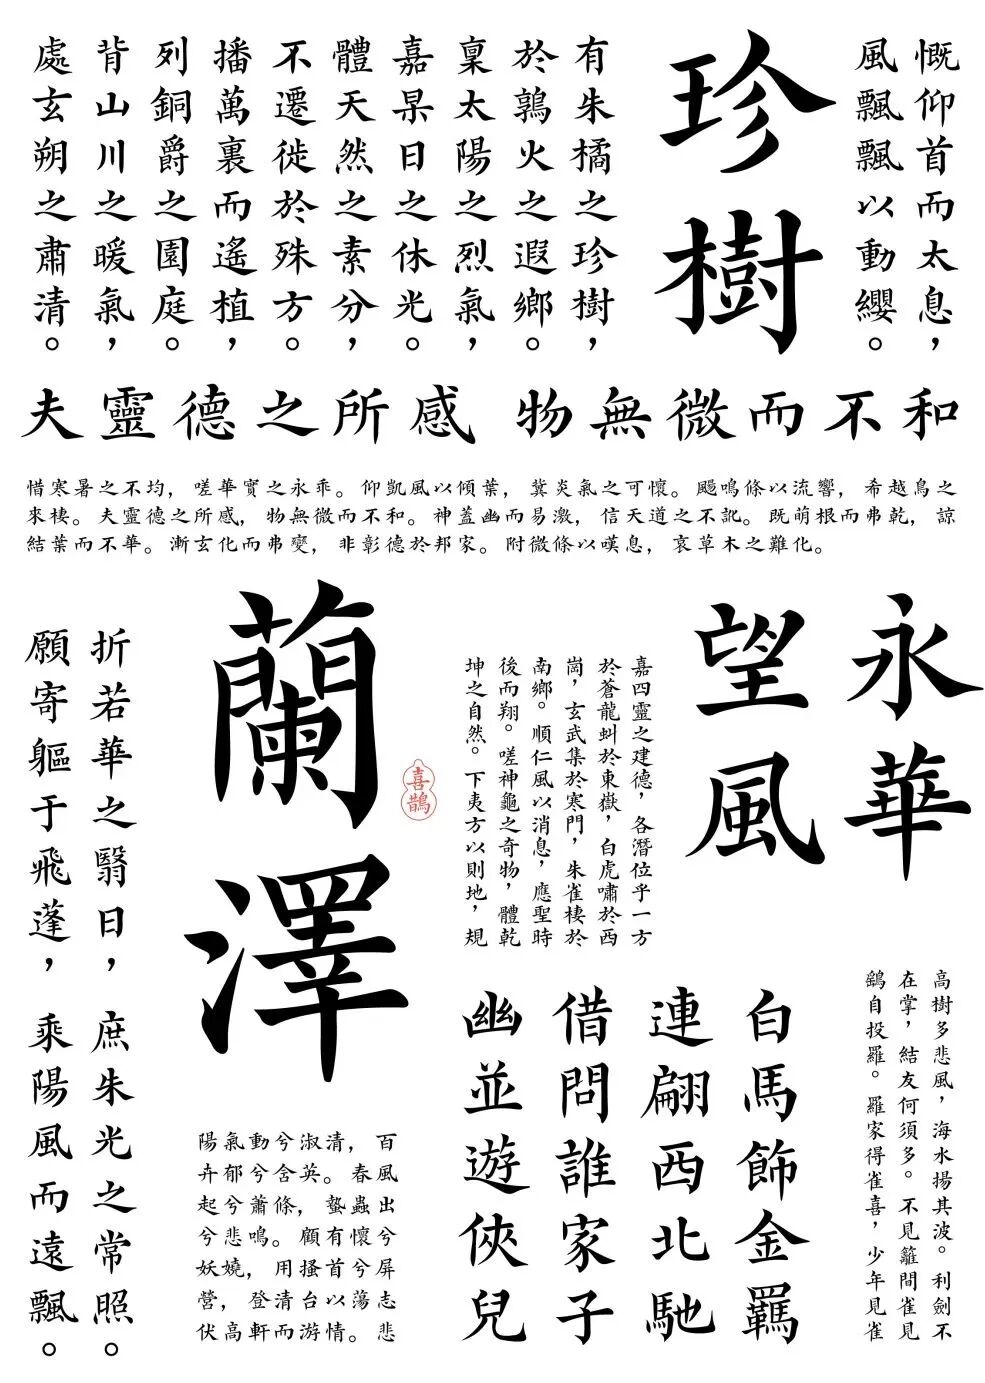 慨仰首而太息，
風飄飄以動纓。
珍樹
有朱橘之珍樹，
於鶉火之遐鄉。
稟太陽之烈氣，
嘉杲日之休光。
體天然之素分，
不遷徙於殊方。
播萬裏而遙植，
列銅爵之園庭。
背山川之暖氣，
處玄朔之肅清。
夫靈德之所感 物無微而不和
惜寒暑之不均，嗟華實之永乖。仰凱風以傾葉，冀炎氣之可懷。飏鳴條以流響，希越鳥之
來棲。夫靈德之所感，物無微而不和。神蓋幽而易激，信天道之不訛。既萌根而弗乾，諒
結葉而不華。漸玄化而弗變，非彰德於邦家。附微條以嘆息，哀草木之難化。
永華
望風
嘉四靈之建德，各潛位乎一方
於蒼龍虯於東嶽，白虎嘯於西
崗，玄武集於寒門，朱雀棲於
南鄉。順仁風以消息，應聖時
後而翔。嗟神龜之奇物，體乾
坤之自然。下夷方以則地，規
蘭澤
喜鵲
折若華之翳日，庶朱光之常照。
願寄軀于飛蓬，乘陽風而遠飄。
高樹多悲風，海水揚其波。利劍不
在掌，結友何須多。不見籬間雀見
鷂自投羅。羅家得雀喜，少年見雀
白馬飾金羈
連翩西北馳
借問誰家子
幽並遊俠兒
陽氣動兮淑清，百
卉郁兮含英。春風
起兮蕭條，蟄蟲出
兮悲鳴。顧有懷兮
妖嬈，用搔首兮屏
營，登清台以蕩志
伏高軒而游情。悲